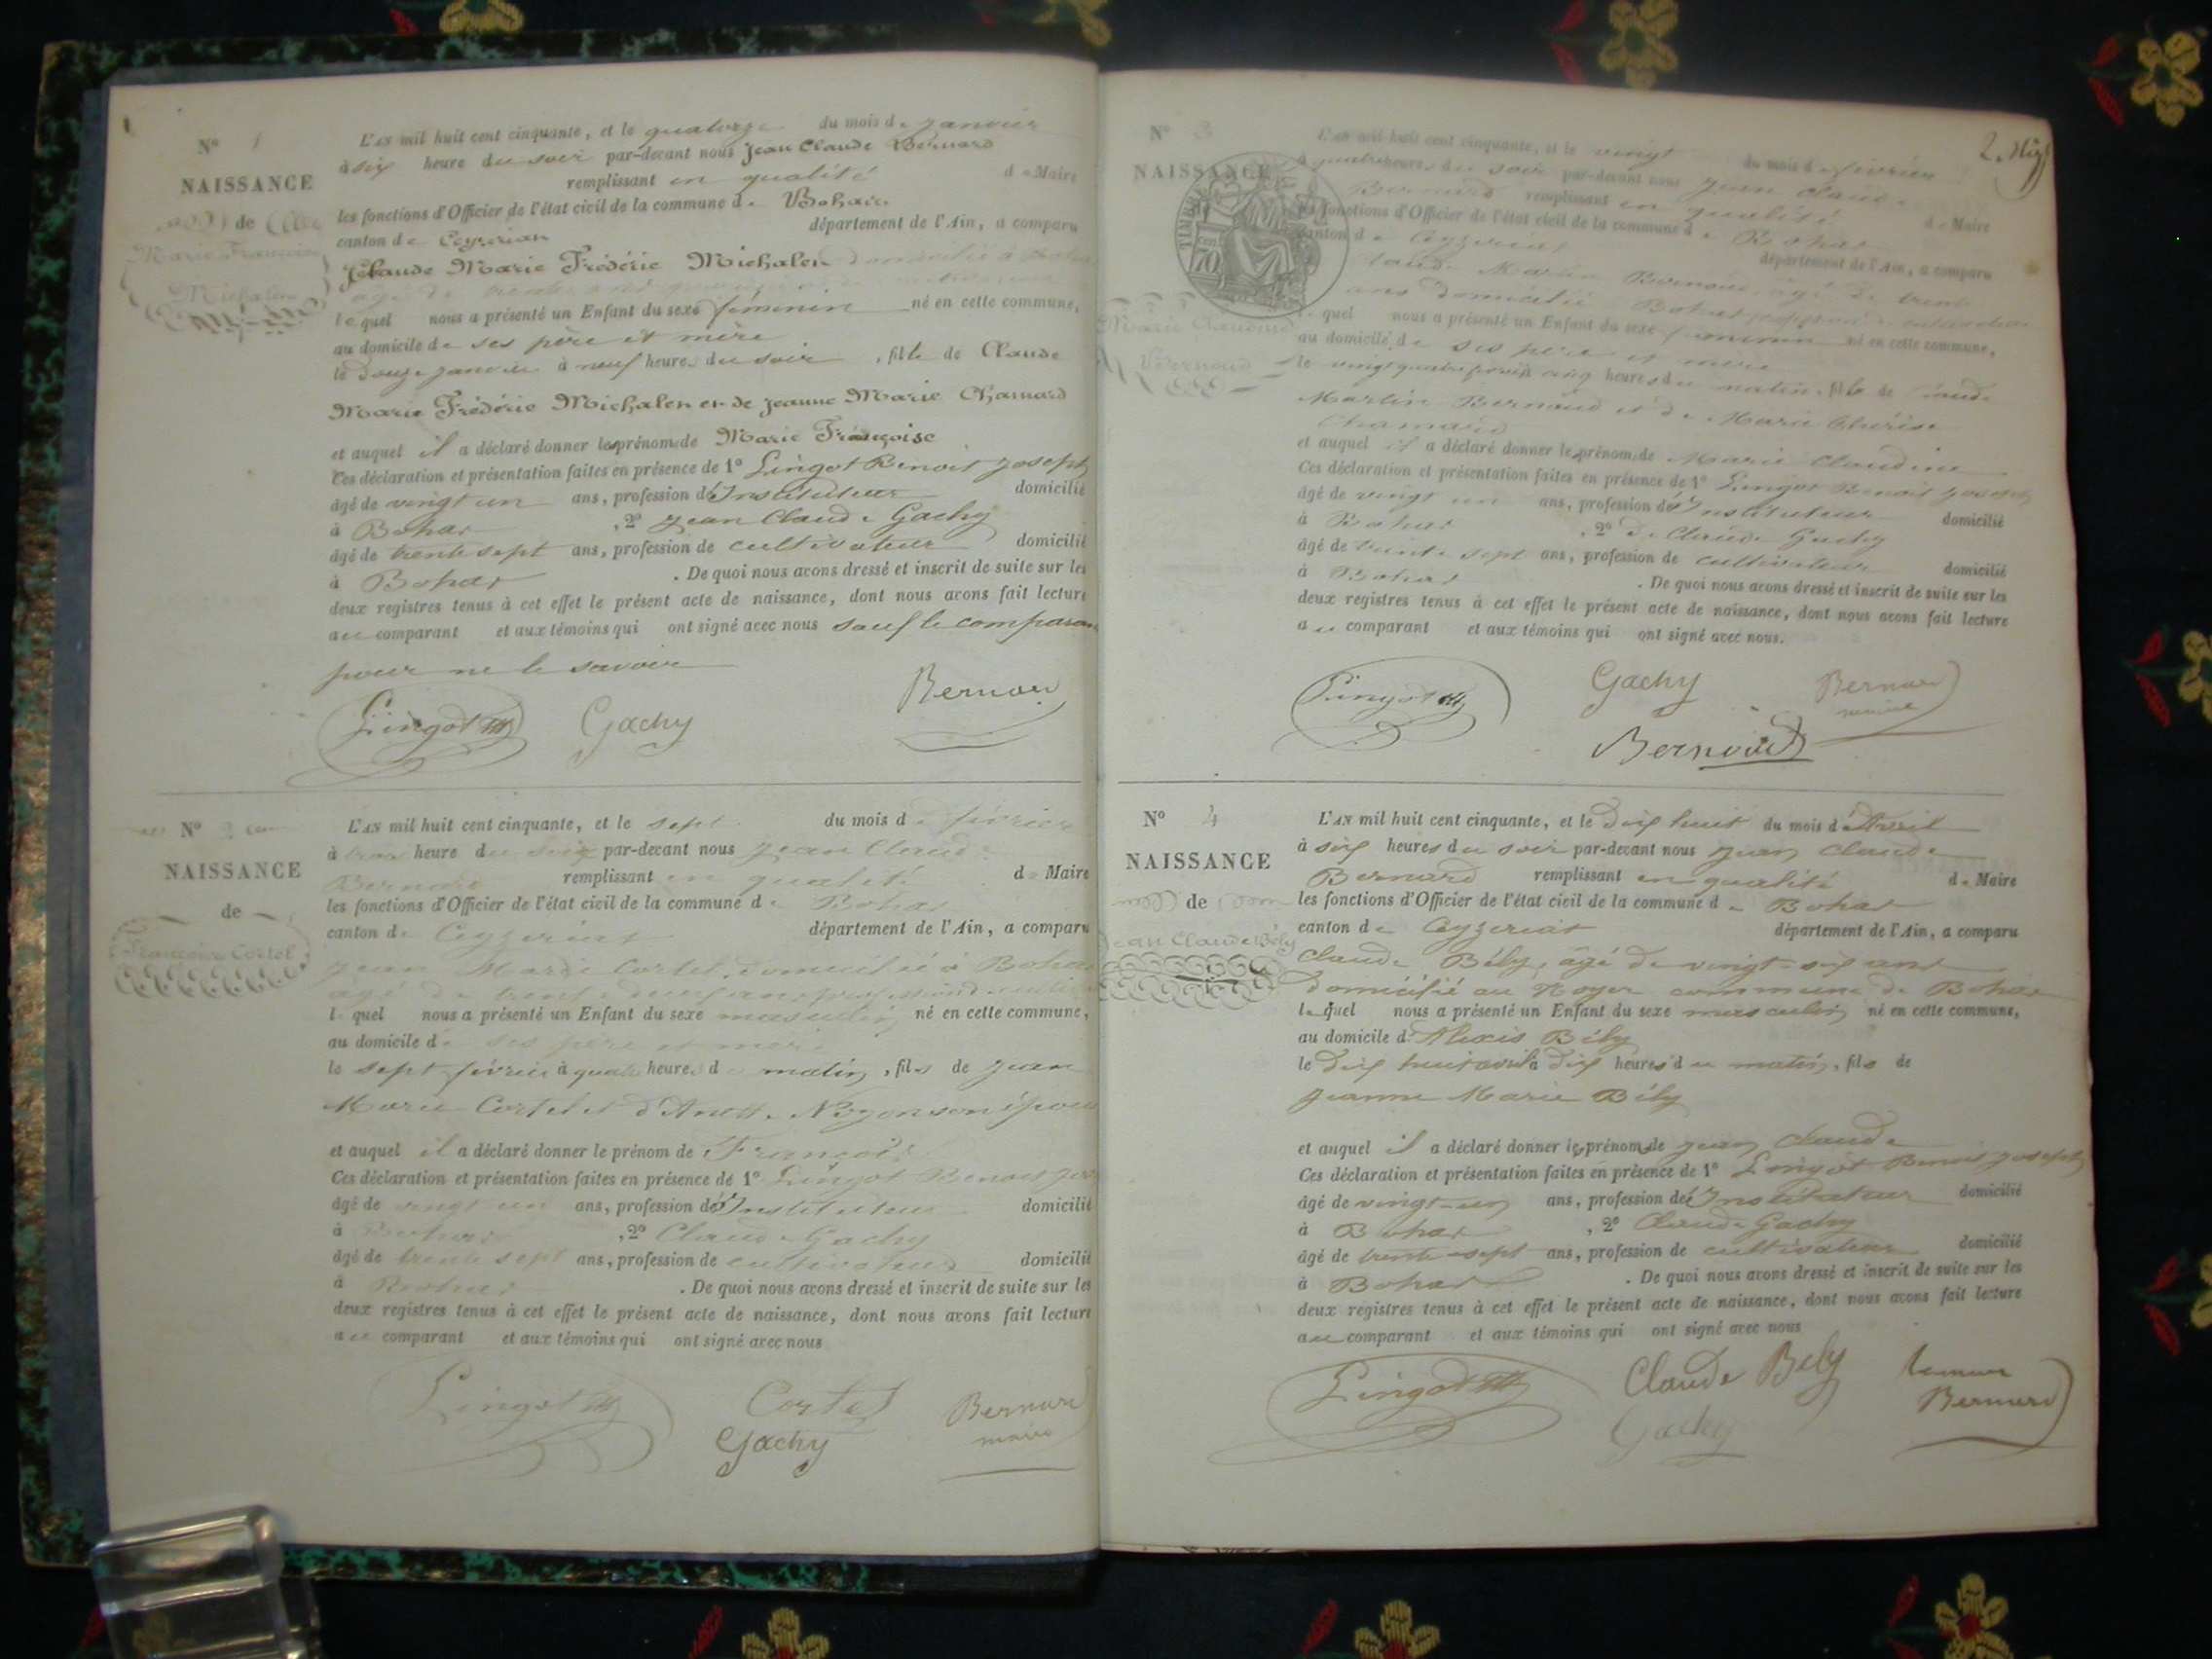 N° 1
NAISSANCE
de
Marie Françoise
Michalon
L'AN mil huit cent cinquante, et le quatorze du mois de janvier
à six heure du soir par-devant nous Jean Claude Bernard
remplissant en qualité de Maire
les fonctions d'Officier de l'état civil de la commune de Bohas
canton de Ceyzeriat département de l'Ain, a comparu
Claude Marie Frédéric Michalon domicilié à
âgé de trente
lequel nous a présenté un Enfant du sexe féminin né en cette commune,
au domicile de ses père et mère
le douze janvier à neuf heures du soir, fille de Claude
Marie Frédéric Michalon et de Jeanne Marie Chanard
et auquel il a déclaré donner les prénoms de Marie Françoise
Ces déclaration et présentation faites en présence de 1° Lingot Benoit Joseph
âgé de vingt un ans, profession d'Instituteur domicilié
à Bohas, 2° Jean Claude Gachy
âgé de trente sept ans, profession de cultivateur domicilié
à Bohas. De quoi nous avons dressé et inscrit de suite sur les
deux registres tenus à cet effet le présent acte de naissance, dont nous avons fait lecture
au comparant et aux témoins qui ont signé avec nous sauf le comparant
pour ne le savoir
Lingot Gachy Bernard
N° 2
NAISSANCE
de
François Cortel
L'AN mil huit cent cinquante, et le sept du mois de février
à heure du soir par-devant nous Jean Claude
Bernard remplissant en qualité de Maire
les fonctions d'Officier de l'état civil de la commune de Bohas
canton de Ceyzeriat département de l'Ain, a comparu
Jean Marie Cortel, domicilié à Bohas
âgé de trente deux ans, profession de
lequel nous a présenté un Enfant du sexe masculin né en cette commune,
au domicile de ses père et mère
le sept février à quatre heures du matin, fils de Jean
Marie Cortel et d'Anne Noyon son épouse
et auquel il a déclaré donner le prénom de François
Ces déclaration et présentation faites en présence de 1° Lingot Benoit
âgé de vingt un ans, profession d'Instituteur domicilié
à Bohas, 2° Claude Gachy
âgé de trente sept ans, profession de cultivateur domicilié
à Bohas. De quoi nous avons dressé et inscrit de suite sur les
deux registres tenus à cet effet le présent acte de naissance, dont nous avons fait lecture
au comparant et aux témoins qui ont signé avec nous
Lingot Cortel Bernard
Gachy maire
2
N° 3
NAISSANCE
TIMBRE
70
Marie Claudine
Bernoud
L'AN mil huit cent cinquante, et le vingt du mois de février
à quatre heures du soir par-devant nous Jean Claude
Bernard remplissant en qualité de Maire
les fonctions d'Officier de l'état civil de la commune de Bohas
canton de Ceyzeriat département de l'Ain, a comparu
Claude Martin Bernoud, âgé de trente
ans domicilié à Bohas profession de cultivateur
lequel nous a présenté un Enfant du sexe féminin né en cette commune,
au domicile de ses père et mère
le vingt à cinq heures du matin, fille de Claude
Martin Bernoud et de Marie Thérèse
Chanard
et auquel il a déclaré donner les prénoms de Marie Claudine
Ces déclaration et présentation faites en présence de 1° Lingot Benoit Joseph
âgé de vingt un ans, profession d'Instituteur domicilié
à Bohas, 2° Claude Gachy
âgé de trente sept ans, profession de cultivateur domicilié
à Bohas. De quoi nous avons dressé et inscrit de suite sur les
deux registres tenus à cet effet le présent acte de naissance, dont nous avons fait lecture
au comparant et aux témoins qui ont signé avec nous.
Lingot Gachy Bernard
Bernoud
N° 4
NAISSANCE
de
Jean Claude Bély
L'AN mil huit cent cinquante, et le dix huit du mois d'Avril
à six heures du soir par-devant nous Jean Claude
Bernard remplissant en qualité de Maire
les fonctions d'Officier de l'état civil de la commune de Bohas
canton de Ceyzeriat département de l'Ain, a comparu
Claude Bély, âgé de vingt-six ans
domicilié au Noyer commune de Bohas
lequel nous a présenté un Enfant du sexe masculin né en cette commune,
au domicile d'Alexis Bély
le dix huit avril à dix heures du matin, fils de
Jeanne Marie Bély
et auquel il a déclaré donner les prénoms de Jean Claude
Ces déclaration et présentation faites en présence de 1° Lingot Benoit Joseph
âgé de vingt-un ans, profession d'Instituteur domicilié
à Bohas, 2° Claude Gachy
âgé de trente-sept ans, profession de cultivateur domicilié
à Bohas. De quoi nous avons dressé et inscrit de suite sur les
deux registres tenus à cet effet le présent acte de naissance, dont nous avons fait lecture
au comparant et aux témoins qui ont signé avec nous
Lingot Claude Bely
Gachy Bernard